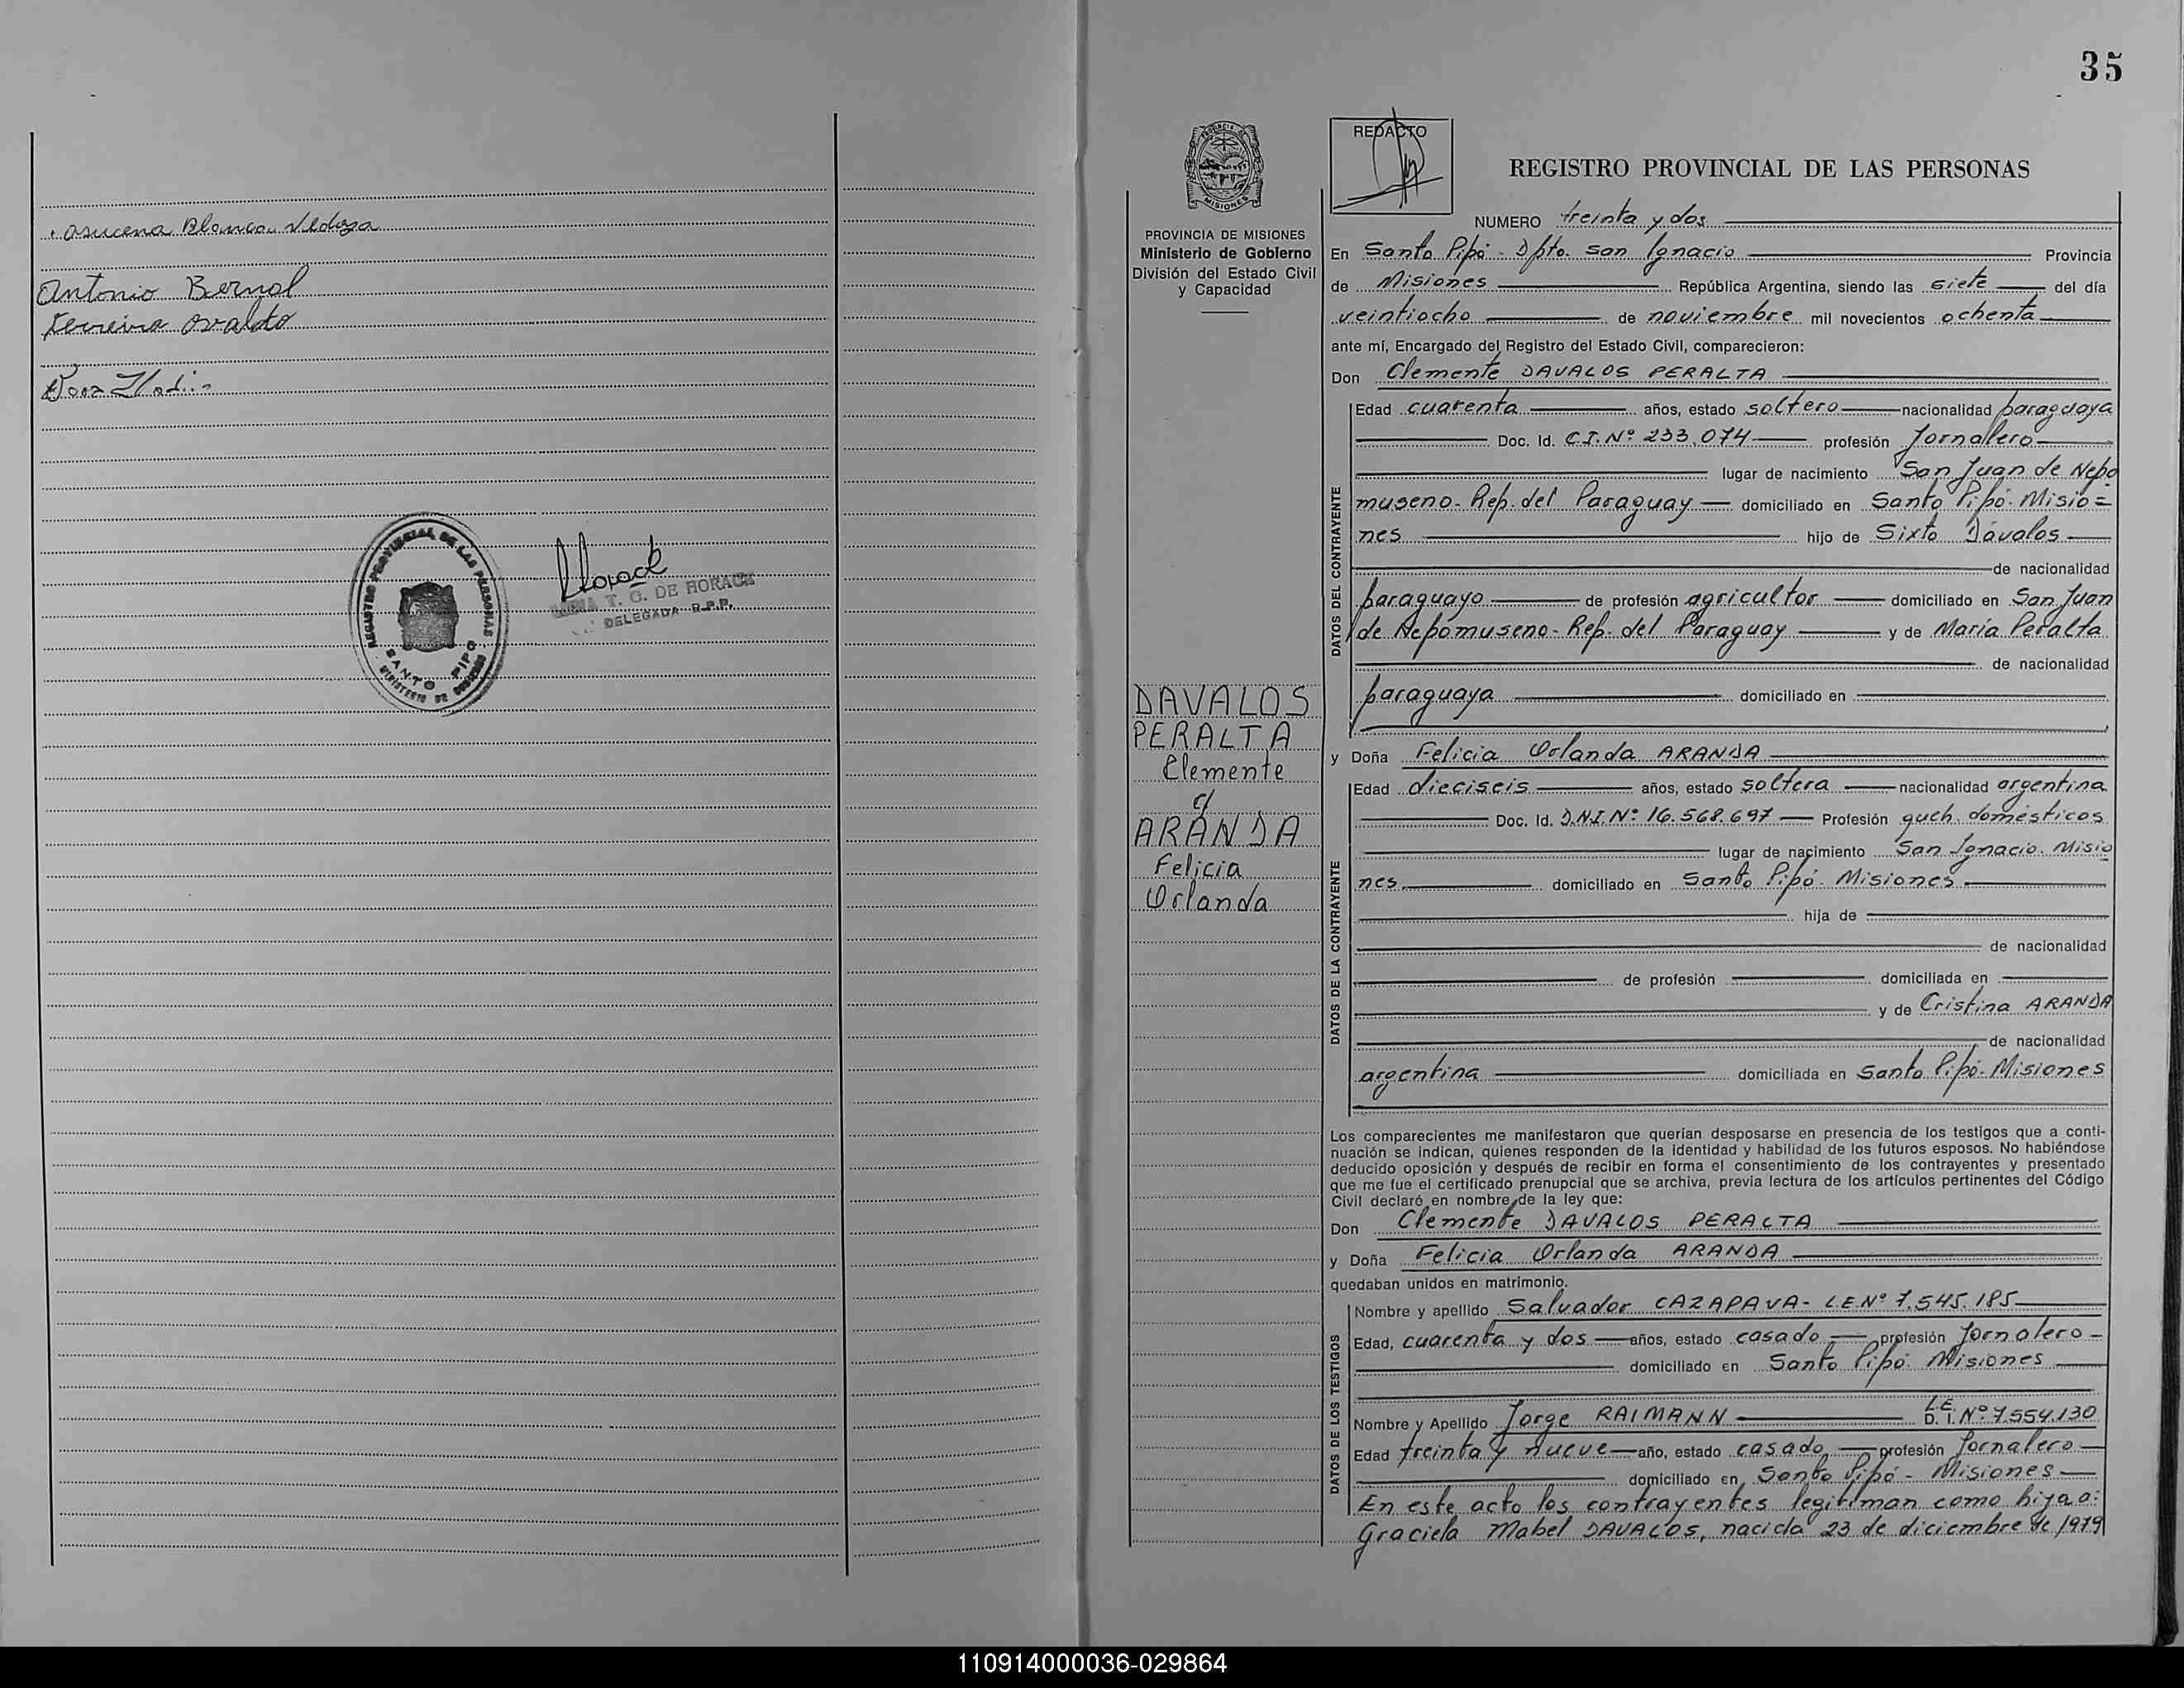 Asucena Blanca
Antonio Bernal
Ferreira Osvaldo
REGISTRO PROVINCIAL DE LAS PERSONAS
SANTO PIPO
T. G. DE HORACK
DELEGADA R.P.P.
35
REDACTO
PROVINCIA DE MISIONES
Ministerio de Gobierno
División del Estado Civil
y Capacidad
DAVALOS
PERALTA
Clemente
c/
ARANDA
Felicia
Orlanda
REGISTRO PROVINCIAL DE LAS PERSONAS
NUMERO treinta y dos
En Santo Pipó - Dpto. San Ignacio Provincia
de Misiones República Argentina, siendo las siete del día
veintiocho de noviembre mil novecientos ochenta
ante mí, Encargado del Registro del Estado Civil, comparecieron:
Don Clemente DAVALOS PERALTA
DATOS DEL CONTRAYENTE
Edad cuarenta años, estado soltero nacionalidad paraguaya
Doc. Id. C.I. Nº 233.074 profesión Jornalero
lugar de nacimiento San Juan de Nepo
museno - Rep. del Paraguay domiciliado en Santo Pipó - Misio=
nes hijo de Sixto Dávalos
de nacionalidad
paraguayo de profesión agricultor domiciliado en San Juan
de Nepomuseno - Rep. del Paraguay y de María Peralta
de nacionalidad
paraguaya domiciliado en
y Doña Felicia Orlanda ARANDA
DATOS DE LA CONTRAYENTE
Edad dieciseis años, estado soltera nacionalidad argentina
Doc. Id. D.N.I. Nº 16.568.697 Profesión queh. domésticos
lugar de nacimiento San Ignacio. Misio
nes domiciliado en Santo Pipó - Misiones
hija de
de nacionalidad
de profesión domiciliada en
y de Cristina ARANDA
de nacionalidad
argentina domiciliada en Santo Pipó - Misiones
Los comparecientes me manifestaron que querían desposarse en presencia de los testigos que a conti-
nuación se indican, quienes responden de la identidad y habilidad de los futuros esposos. No habiéndose
deducido oposición y después de recibir en forma el consentimiento de los contrayentes y presentado
que me fue el certificado prenupcial que se archiva, previa lectura de los artículos pertinentes del Código
Civil declaré en nombre de la ley que:
Don Clemente DAVALOS PERALTA
y Doña Felicia Orlanda ARANDA
quedaban unidos en matrimonio.
DATOS DE LOS TESTIGOS
Nombre y apellido Salvador CAZAPAVA - L.E. Nº 7.545.185
Edad, cuarenta y dos años, estado casado profesión Jornalero
domiciliado en Santo Pipó - Misiones
Nombre y Apellido Jorge RAIMANN L.E. D. I. Nº 7.554.130
Edad treinta y nueve año, estado casado profesión Jornalero
domiciliado en Santo Pipó - Misiones
En este acto los contrayentes legitiman como hija a:
Graciela Mabel DAVALOS, nacida 23 de diciembre de 1979
110914000036-029864